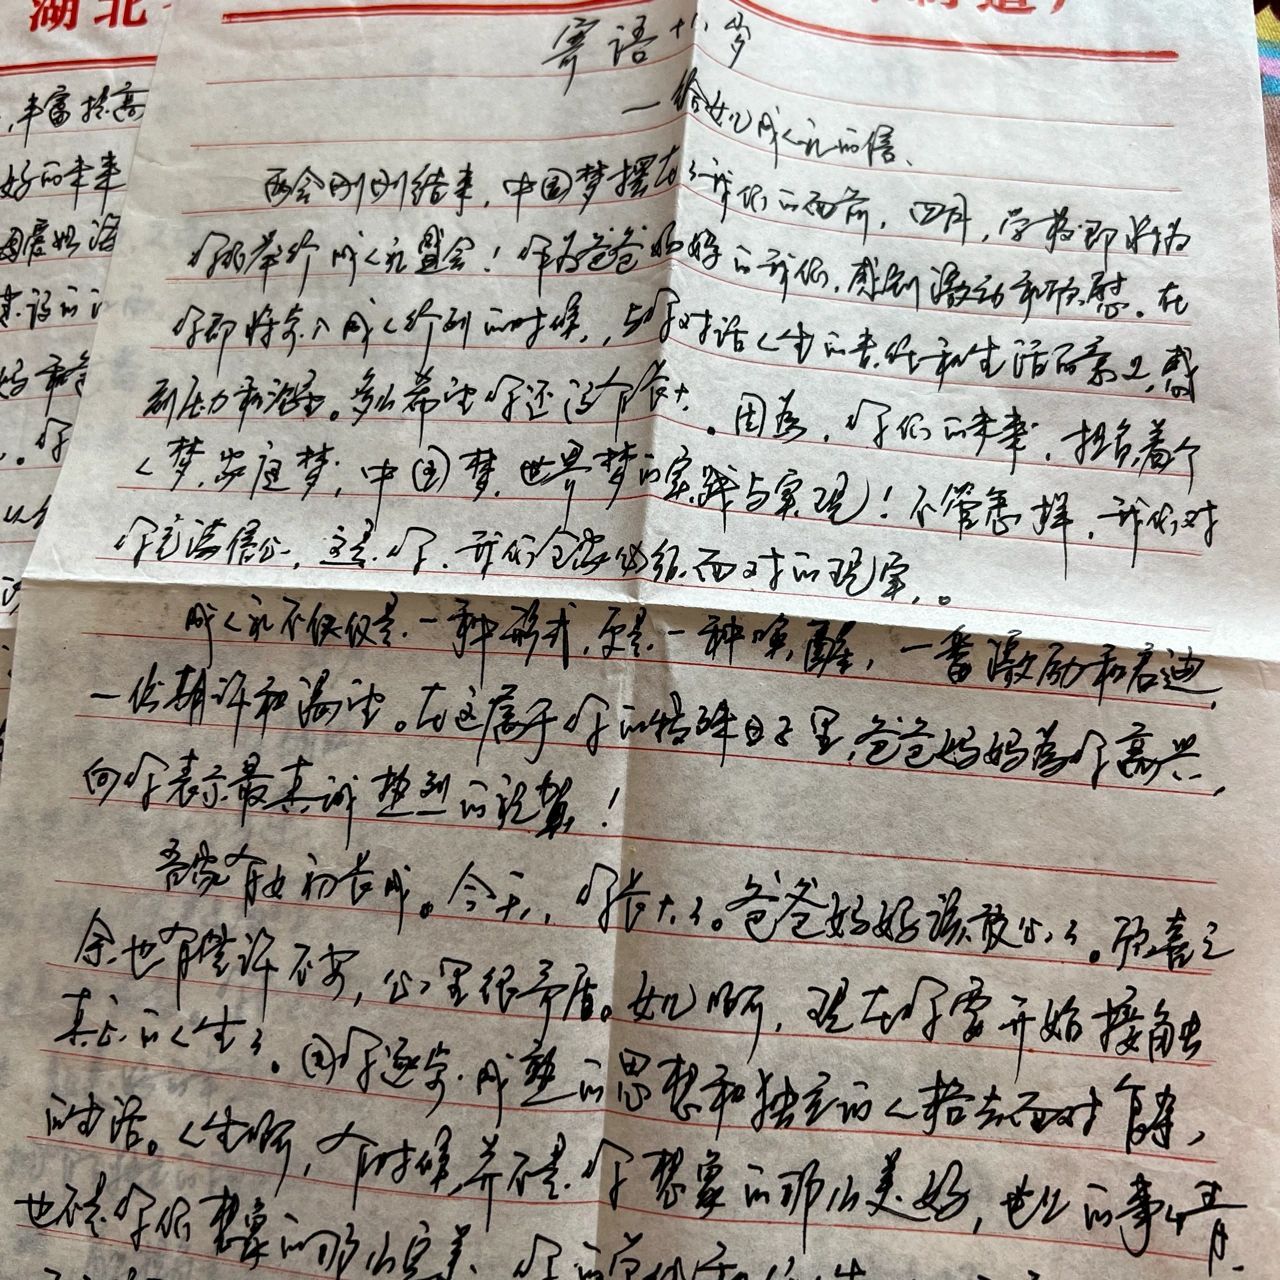 湖北
寄语十八岁
—给女儿成人礼的信
两会刚刚结束，中国梦摆在了我们的面前，四月，学校即将为
你们举行成人礼盛会！作为爸爸妈妈的我们，感到激动和欣慰。在
你即将步入成人行列的时候，与你对话人生的责任和生活的意义，感
到压力和渴望。多么希望你还没有长大。因为，你们的未来，担负着个
人梦，家庭梦，中国梦，世界梦的实践与实现！不管怎样，我们对
你充满信心，这是你、我们全家必须面对的现实。
成人礼不仅仅是一种形式，更是一种唤醒，一番激励和启迪，
一份期许和渴望。在这属于你的特殊日子里，爸爸妈妈为你高兴，
向你表示最真诚热烈的祝贺！
吾家有女初长成。今天，你长大了。爸爸妈妈该放心了。欣喜之
余也有些许不安，心里很矛盾。女儿啊，现在你要开始接触
真正的人生了。用你逐步成熟的思想和独立的人格去面对
的生活。人生啊，有时候并不是你想象的那么美好，世上的事情
也不是你们想象的那么完美
，丰富提高
好的未来